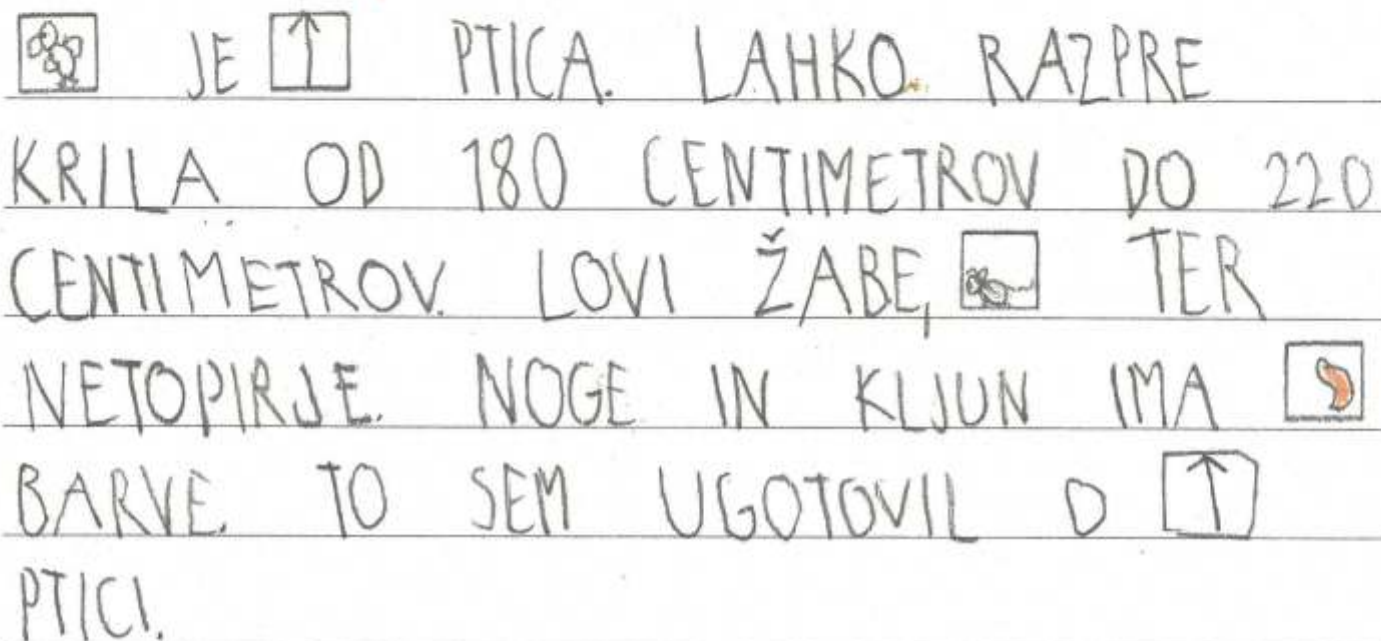 JE PTICA. LAHKO RAZPRE
KRILA OD 180 CENTIMETROV DO 220
CENTIMETROV. LOVI ŽABE, TER
NETOPIRJE. NOGE IN KLJUN IMA
BARVE. TO SEM UGOTOVIL O
PTICI.